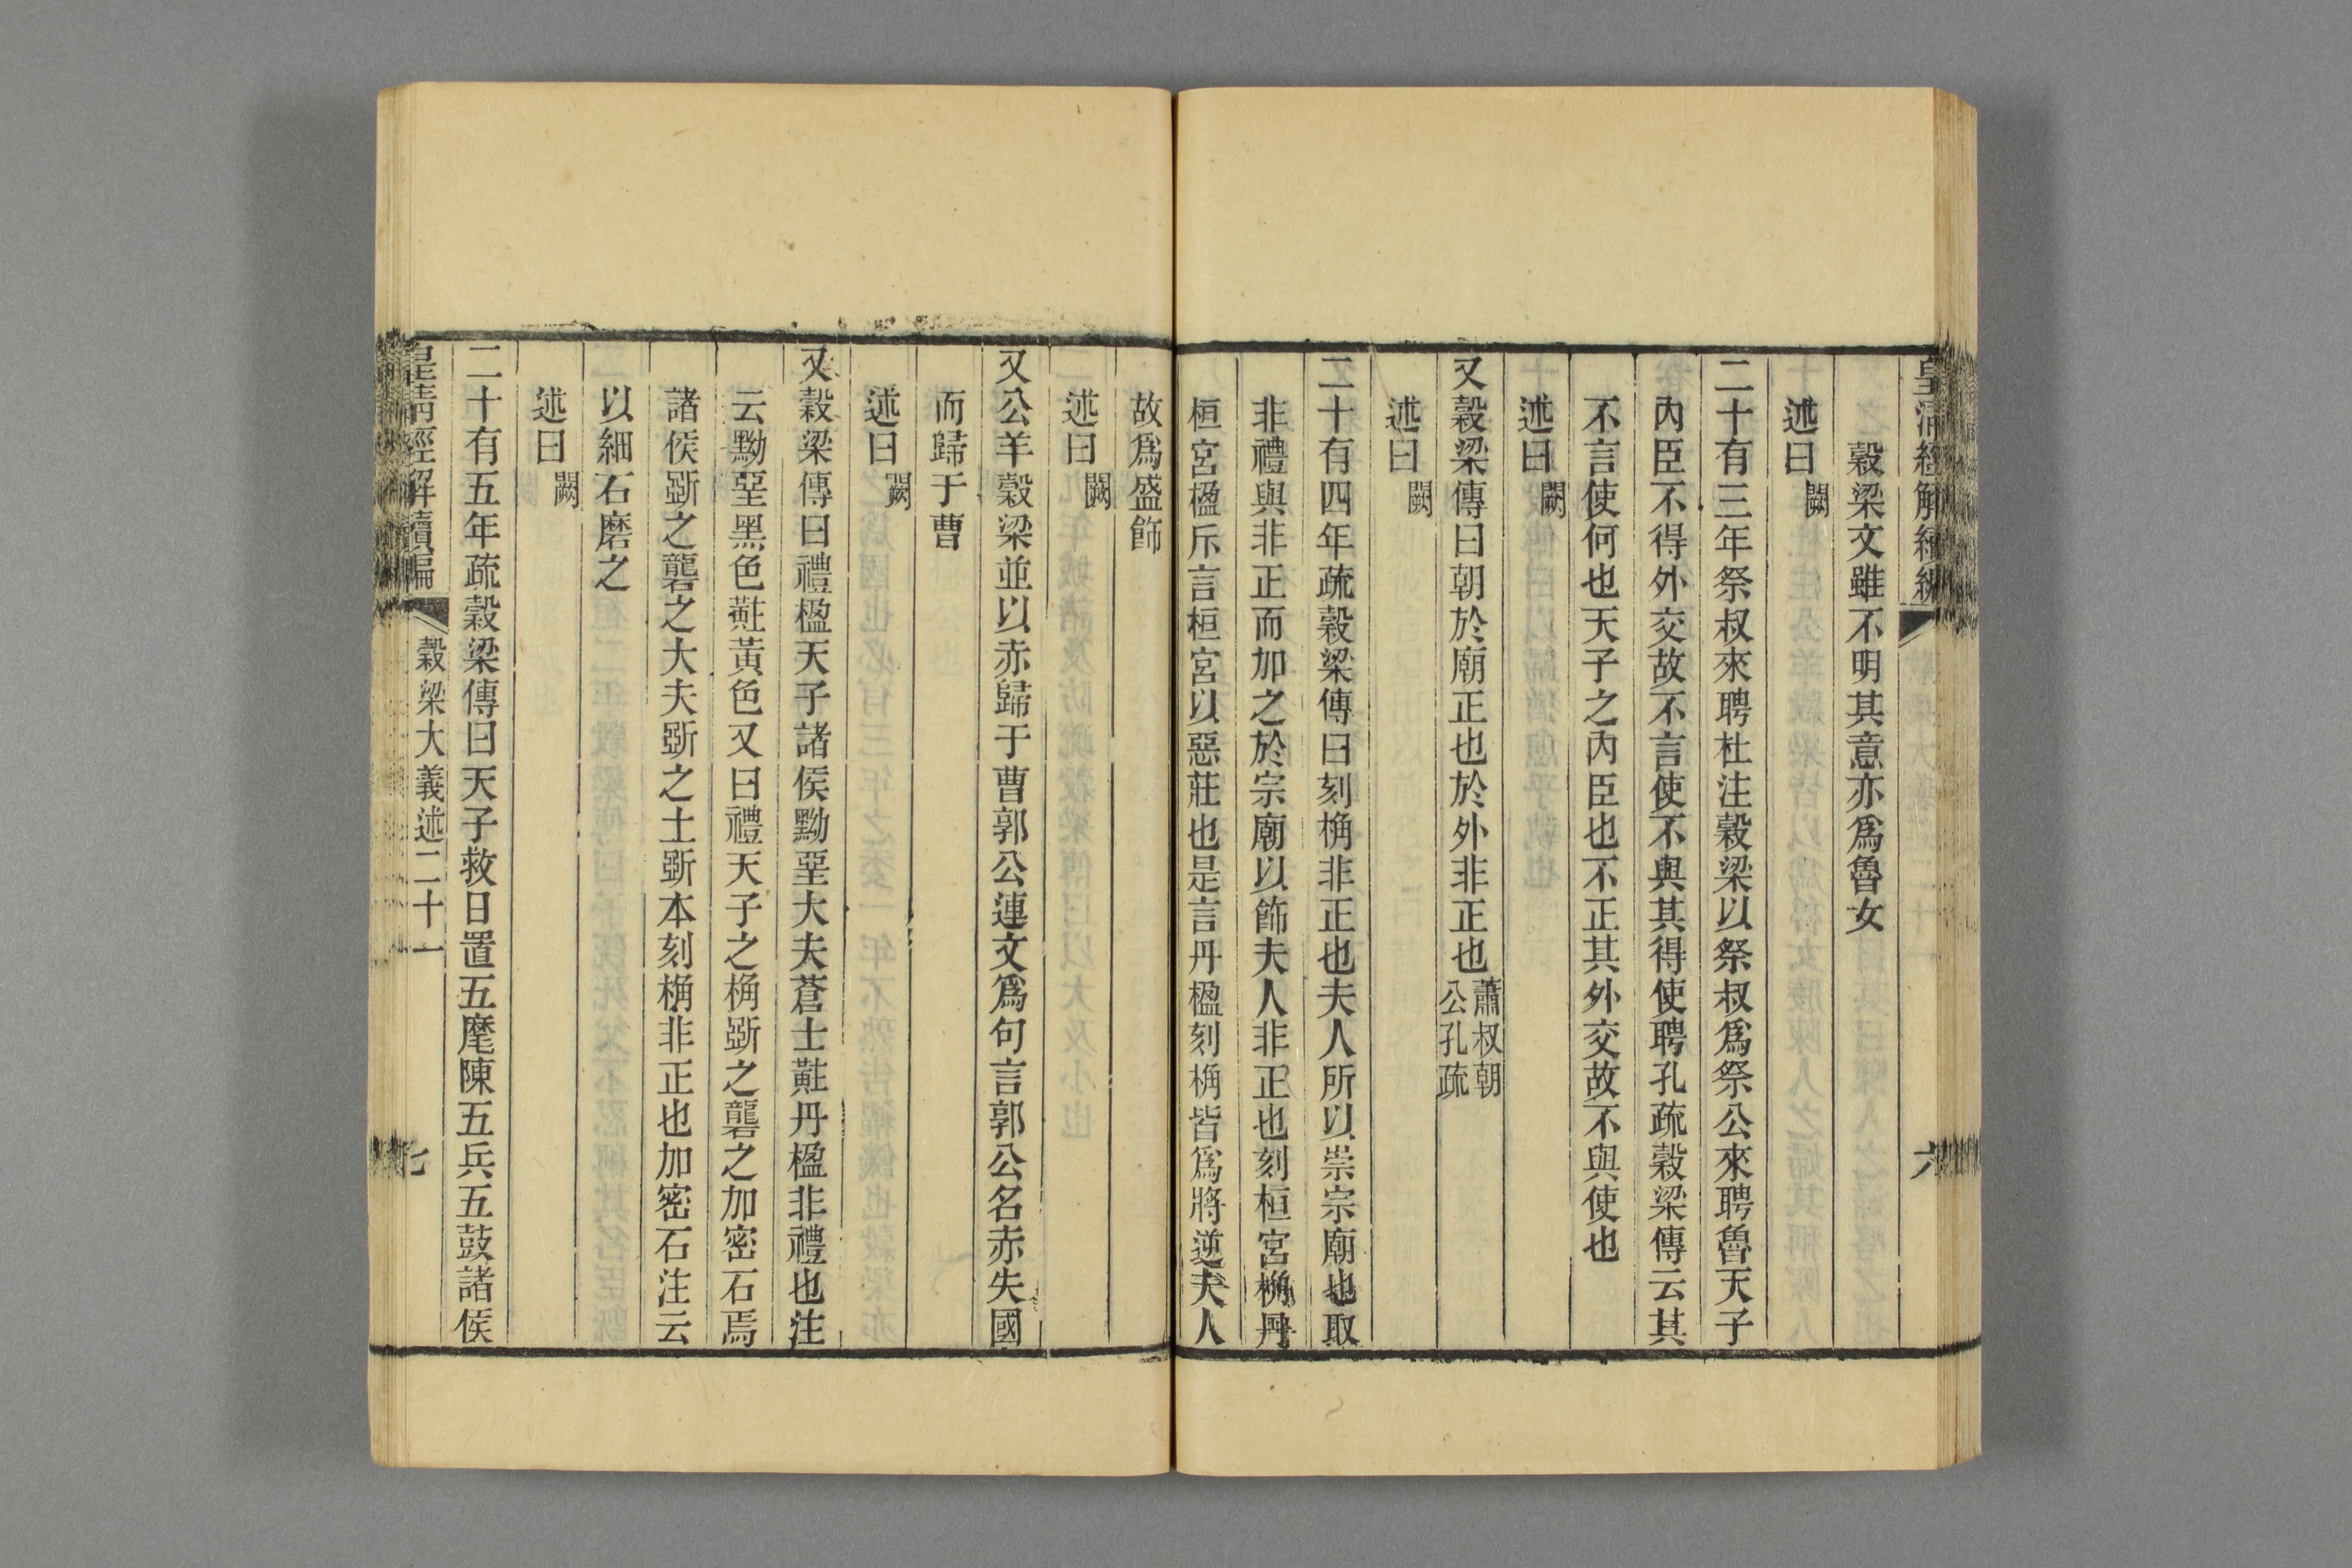 皇清經解續編
六
穀梁文雖不明其意亦爲魯女
述曰闕
二十有三年祭叔來聘杜注穀梁以祭叔爲祭公來聘魯天子
內臣不得外交故不言使不與其得使聘孔疏穀梁傳云其
不言使何也天子之內臣也不正其外交故不與使也
述曰闕
又穀梁傳曰朝於廟正也於外非正也蕭叔朝公孔疏
述曰闕
二十有四年疏穀梁傳曰刻桷非正也夫人所以崇宗廟也取
非禮與非正而加之於宗廟以飾夫人非正也刻桓宮桷丹
桓宮楹斥言桓宮以惡莊也是言丹楹刻桷皆爲將逆夫人
故爲盛飾
述曰闕
又公羊穀梁並以赤歸于曹郭公連文爲句言郭公名赤失國
而歸于曹
述曰闕
又穀梁傳曰禮楹天子諸侯黝堊大夫蒼士黈丹楹非禮也注
云黝堊黑色黈黃色又曰禮天子之桷斲之礱之加密石焉
諸侯斲之礱之大夫斲之士斲本刻桷非正也加密石注云
以細石磨之
述曰闕
二十有五年疏穀梁傳曰天子救日置五麾陳五兵五鼓諸侯
皇清經解續編
穀梁大義述二十一
七